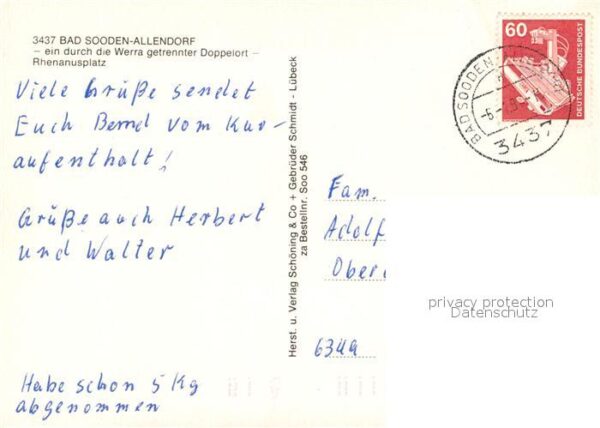 3437 BAD SOODEN-ALLENDORF
– ein durch die Werra getrennter Doppelort –
Rhenanusplatz
Viele Grüße sendet
Euch Bernd vom Kur-
aufenthalt!
Grüße auch Herbert
und Walter
Habe schon 5 Kg
abgenommen
Herst. u. Verlag Schöning & Co + Gebrüder Schmidt - Lübeck
za Bestellnr. Soo 546
60
DEUTSCHE BUNDESPOST
BAD SOODEN-
3437
Fam.
Adolf
privacy protection
Datenschutz